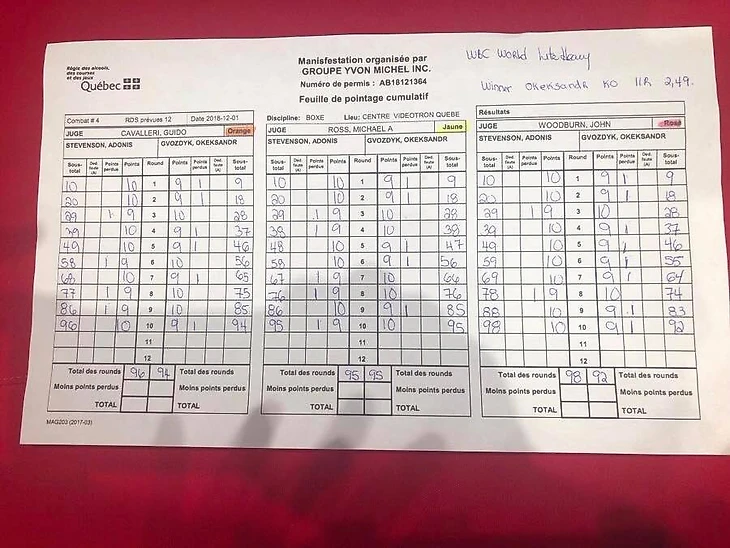 Régie des alcools,
des courses
et des jeux
Québec
Manisfestation organisée par
GROUPE YVON MICHEL INC.
Numéro de permis : AB18121364
Feuille de pointage cumulatif
WBC World Lite Heavy
Winner Okeksandr KO 11R 2,49.
Combat # 4 RDS prévues 12 Date 2018-12-01
JUGE CAVALLERI, GUIDO Orange
STEVENSON, ADONIS GVOZDYK, OKEKSANDR
Sous-total Ded. faute (A) Points perdus Points Round Points Points perdus Ded. faute (A) Sous-total
10 10 1 9 1 9
20 10 2 9 1 18
29 1 9 3 10 28
39 10 4 9 1 37
49 10 5 9 1 46
58 1 9 6 10 56
68 10 7 9 1 65
77 1 9 8 10 75
86 1 9 9 10 85
96 10 10 9 1 94
11
12
Total des rounds 96 94 Total des rounds
Moins points perdus Moins points perdus
TOTAL TOTAL
MAG203 (2017-03)
Discipline: BOXE Lieu: CENTRE VIDEOTRON QUEBE
JUGE ROSS, MICHAEL A Jaune
STEVENSON, ADONIS GVOZDYK, OKEKSANDR
Sous-total Ded. faute (A) Points perdus Points Round Points Points perdus Ded. faute (A) Sous-total
10 10 1 9 1 9
20 10 2 9 1 18
29 1 9 3 10 28
38 1 9 4 10 38
48 10 5 9 1 47
58 10 6 9 1 56
67 1 9 7 10 66
76 1 9 8 10 76
86 10 9 9 1 85
95 1 9 10 10 95
11
12
Total des rounds 95 95 Total des rounds
Moins points perdus Moins points perdus
TOTAL TOTAL
Résultats
JUGE WOODBURN, JOHN Rose
STEVENSON, ADONIS GVOZDYK, OKEKSANDR
Sous-total Ded. faute (A) Points perdus Points Round Points Points perdus Ded. faute (A) Sous-total
10 10 1 9 1 9
20 10 2 9 1 18
29 1 9 3 10 28
39 10 4 9 1 37
49 10 5 9 1 46
59 10 6 9 1 55
69 10 7 9 1 64
78 1 9 8 10 74
88 10 9 9 1 83
98 10 10 9 1 92
11
12
Total des rounds 98 92 Total des rounds
Moins points perdus Moins points perdus
TOTAL TOTAL